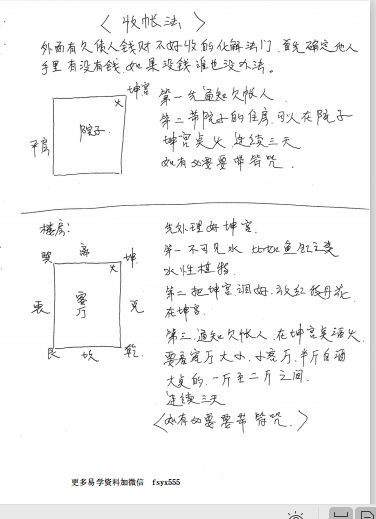 〈收帐法〉
外面有欠债人钱财不好收的化解法门,首先确定他人
手里有没有钱,如果没钱谁也没办法。
坤宫
火
院子
平房
第一先通知欠帐人
第二带院子的住房,可以在院子
坤宫点火 连续三天
如有必要要带符咒.
楼房:
巽 离 坤
火
震 客厅 兑
艮 坎 乾
先处理好坤宫.
第一不可见水 比如鱼缸之类
水性植物.
第二把坤宫调好,放红牡丹花
在坤宫.
第三.通知欠帐人,在坤宫点酒火
要看客厅大小,小客厅,半斤白酒
大点的,一斤至二斤之间.
连续三天
〈如有必要要带符咒.〉
更多易学资料加微信 fsyx555